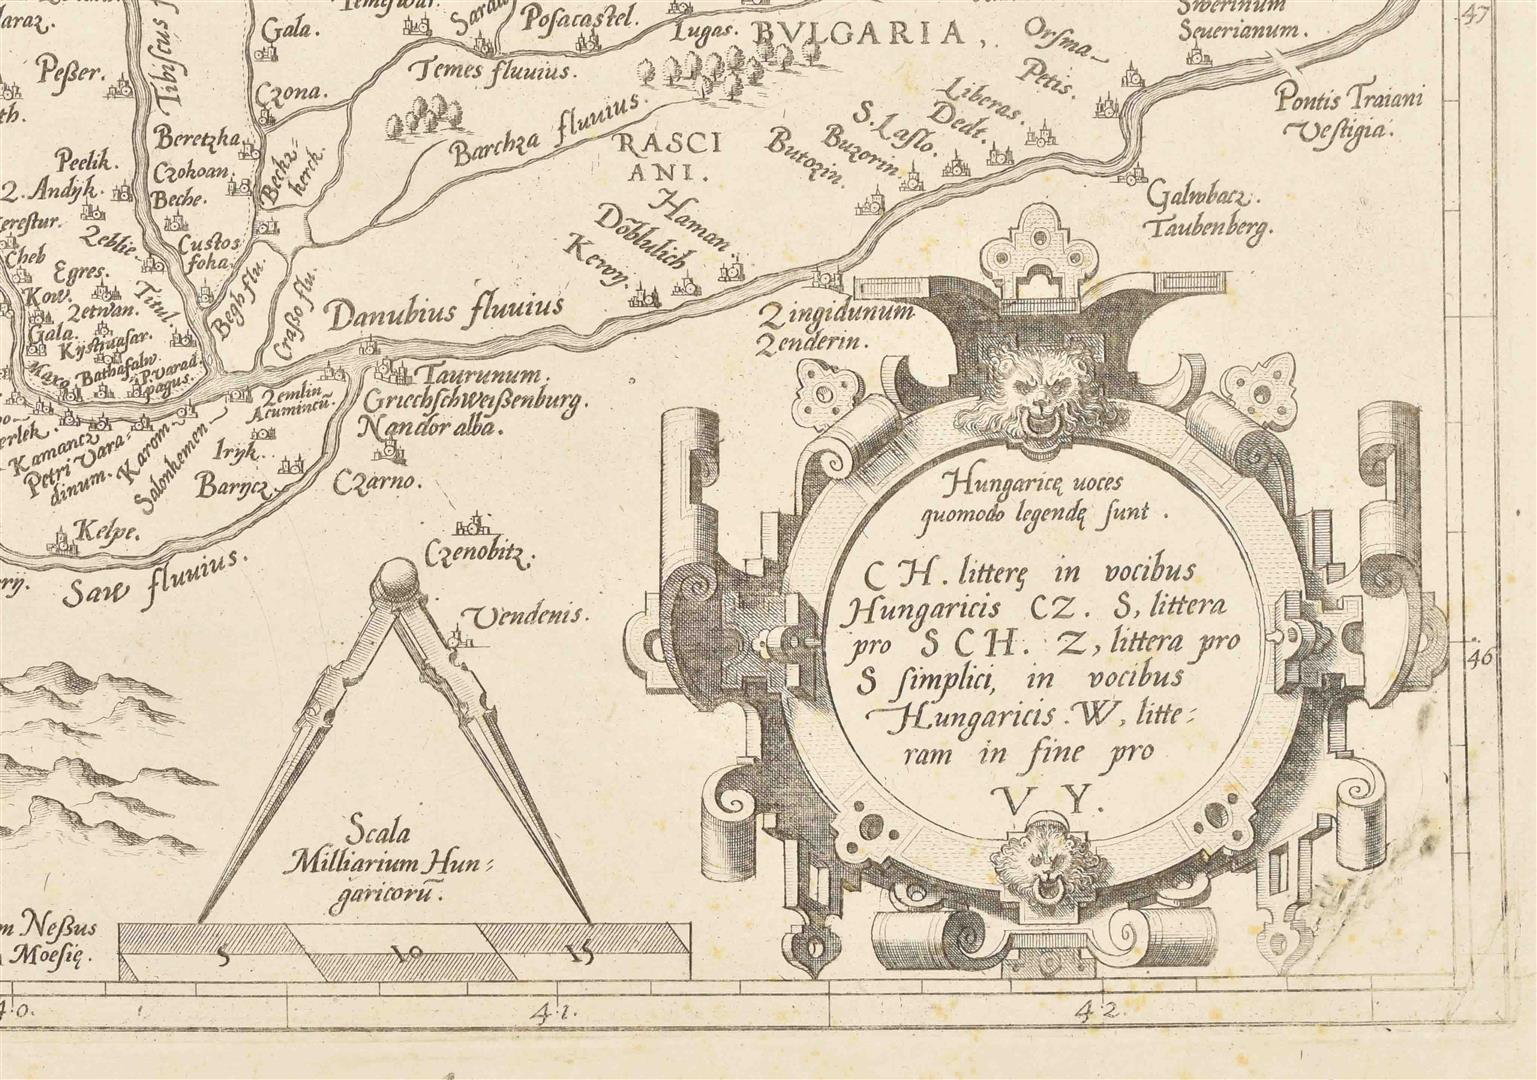 47
Gala.
Posacastel.
Lugas.
BVLGARIA,
Orsma
Petis.
Severianum.
Peßer.
Tibiscus
Temes fluuius.
Czona.
Liberas.
Dedt.
Pontis Traiani
Vestigia.
S. Laslo.
Buzorin.
Butozin.
Barchza fluuius.
RASCI
ANI.
Beretzka
Czohoan.
Beche.
Bechz=
kerck.
Peelik.
Andyk.
Galwbacz.
Taubenberg.
Haman
Döblulich
Kewy.
Zeblie.
Custos
foka.
Cheb
Egres.
Kow.
Zetwan.
Titul.
Begh flu.
Craßo flu.
Danubius fluuius
Zingidunum
Zenderin.
Gala.
Kystiuasar.
Bathafalw
P. Varad
pagus.
Zemlin
Acumincū.
Taurunum.
Griechschweißenburg.
Nandor alba.
Kamancz
Petri Vara=
dinum.
Karom
Salonhemen.
Iryk.
Barycz.
Czarno.
Kelpe.
Czenobitz.
Saw fluuius.
Vendenis.
Hungaricę uoces
quomodo legendę sunt.
CH. litterę in vocibus
Hungaricis CZ. S, littera
pro SCH. Z, littera pro
S simplici, in vocibus
Hungaricis. W, litte=
ram in fine pro
VY.
46
Scala
Milliarium Hun=
garicorū.
Neßus
Moesię.
5 10 15
40. 41. 42.